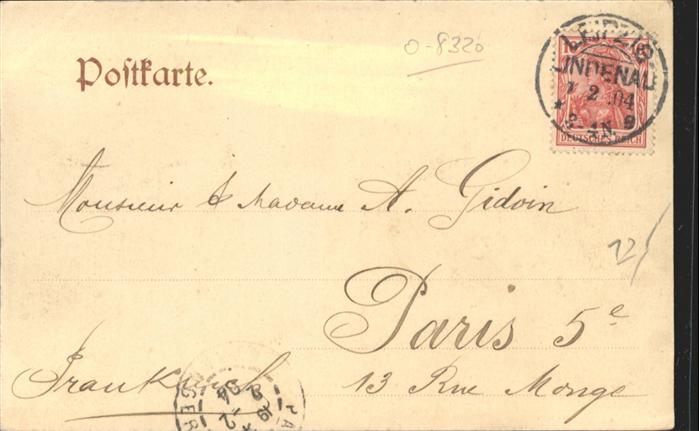 0-8320
Postkarte.
LEIPZIG
LINDENAU
7 2 04
* 3-4N. 9
DEUTSCHES REICH
Monsieur & Madame A. Gidoin
Paris 5e
13 Rue Monge
Frankreich